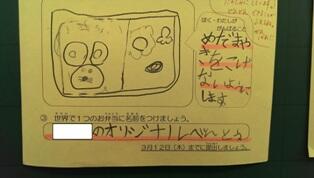 ぼく・わたしが
がんばること
めだまや
きをこげ
ないよおに
します
③ 世界で1つのお弁当に名前をつけましょう。
のオリジナルべんとう
3月12日(木)までに提出しましょう。